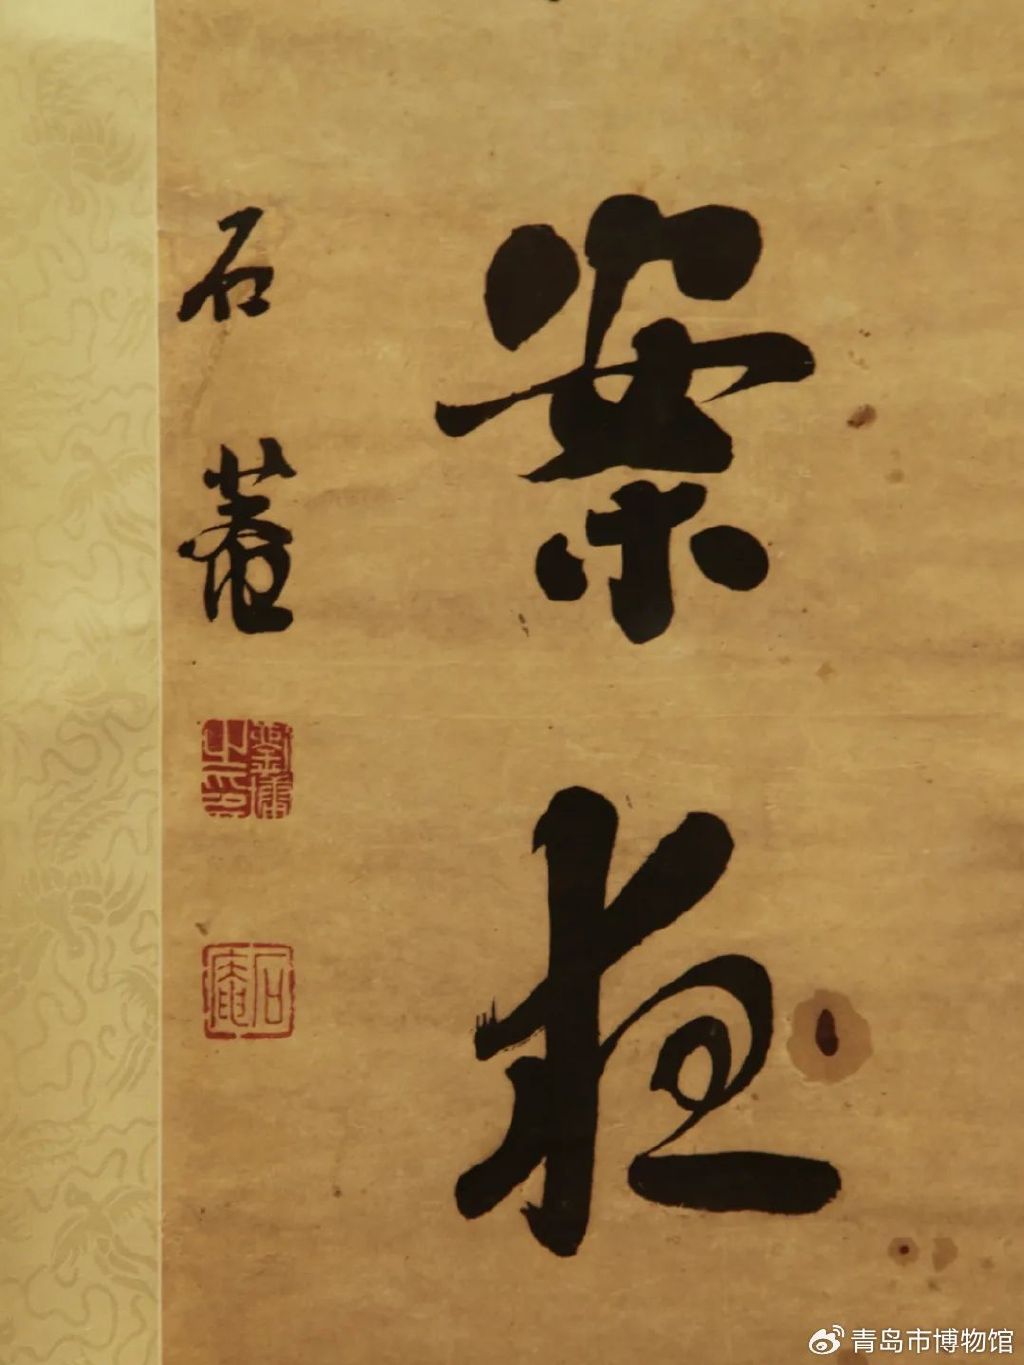 案
石菴
劉墉之印
石庵
青岛市博物馆